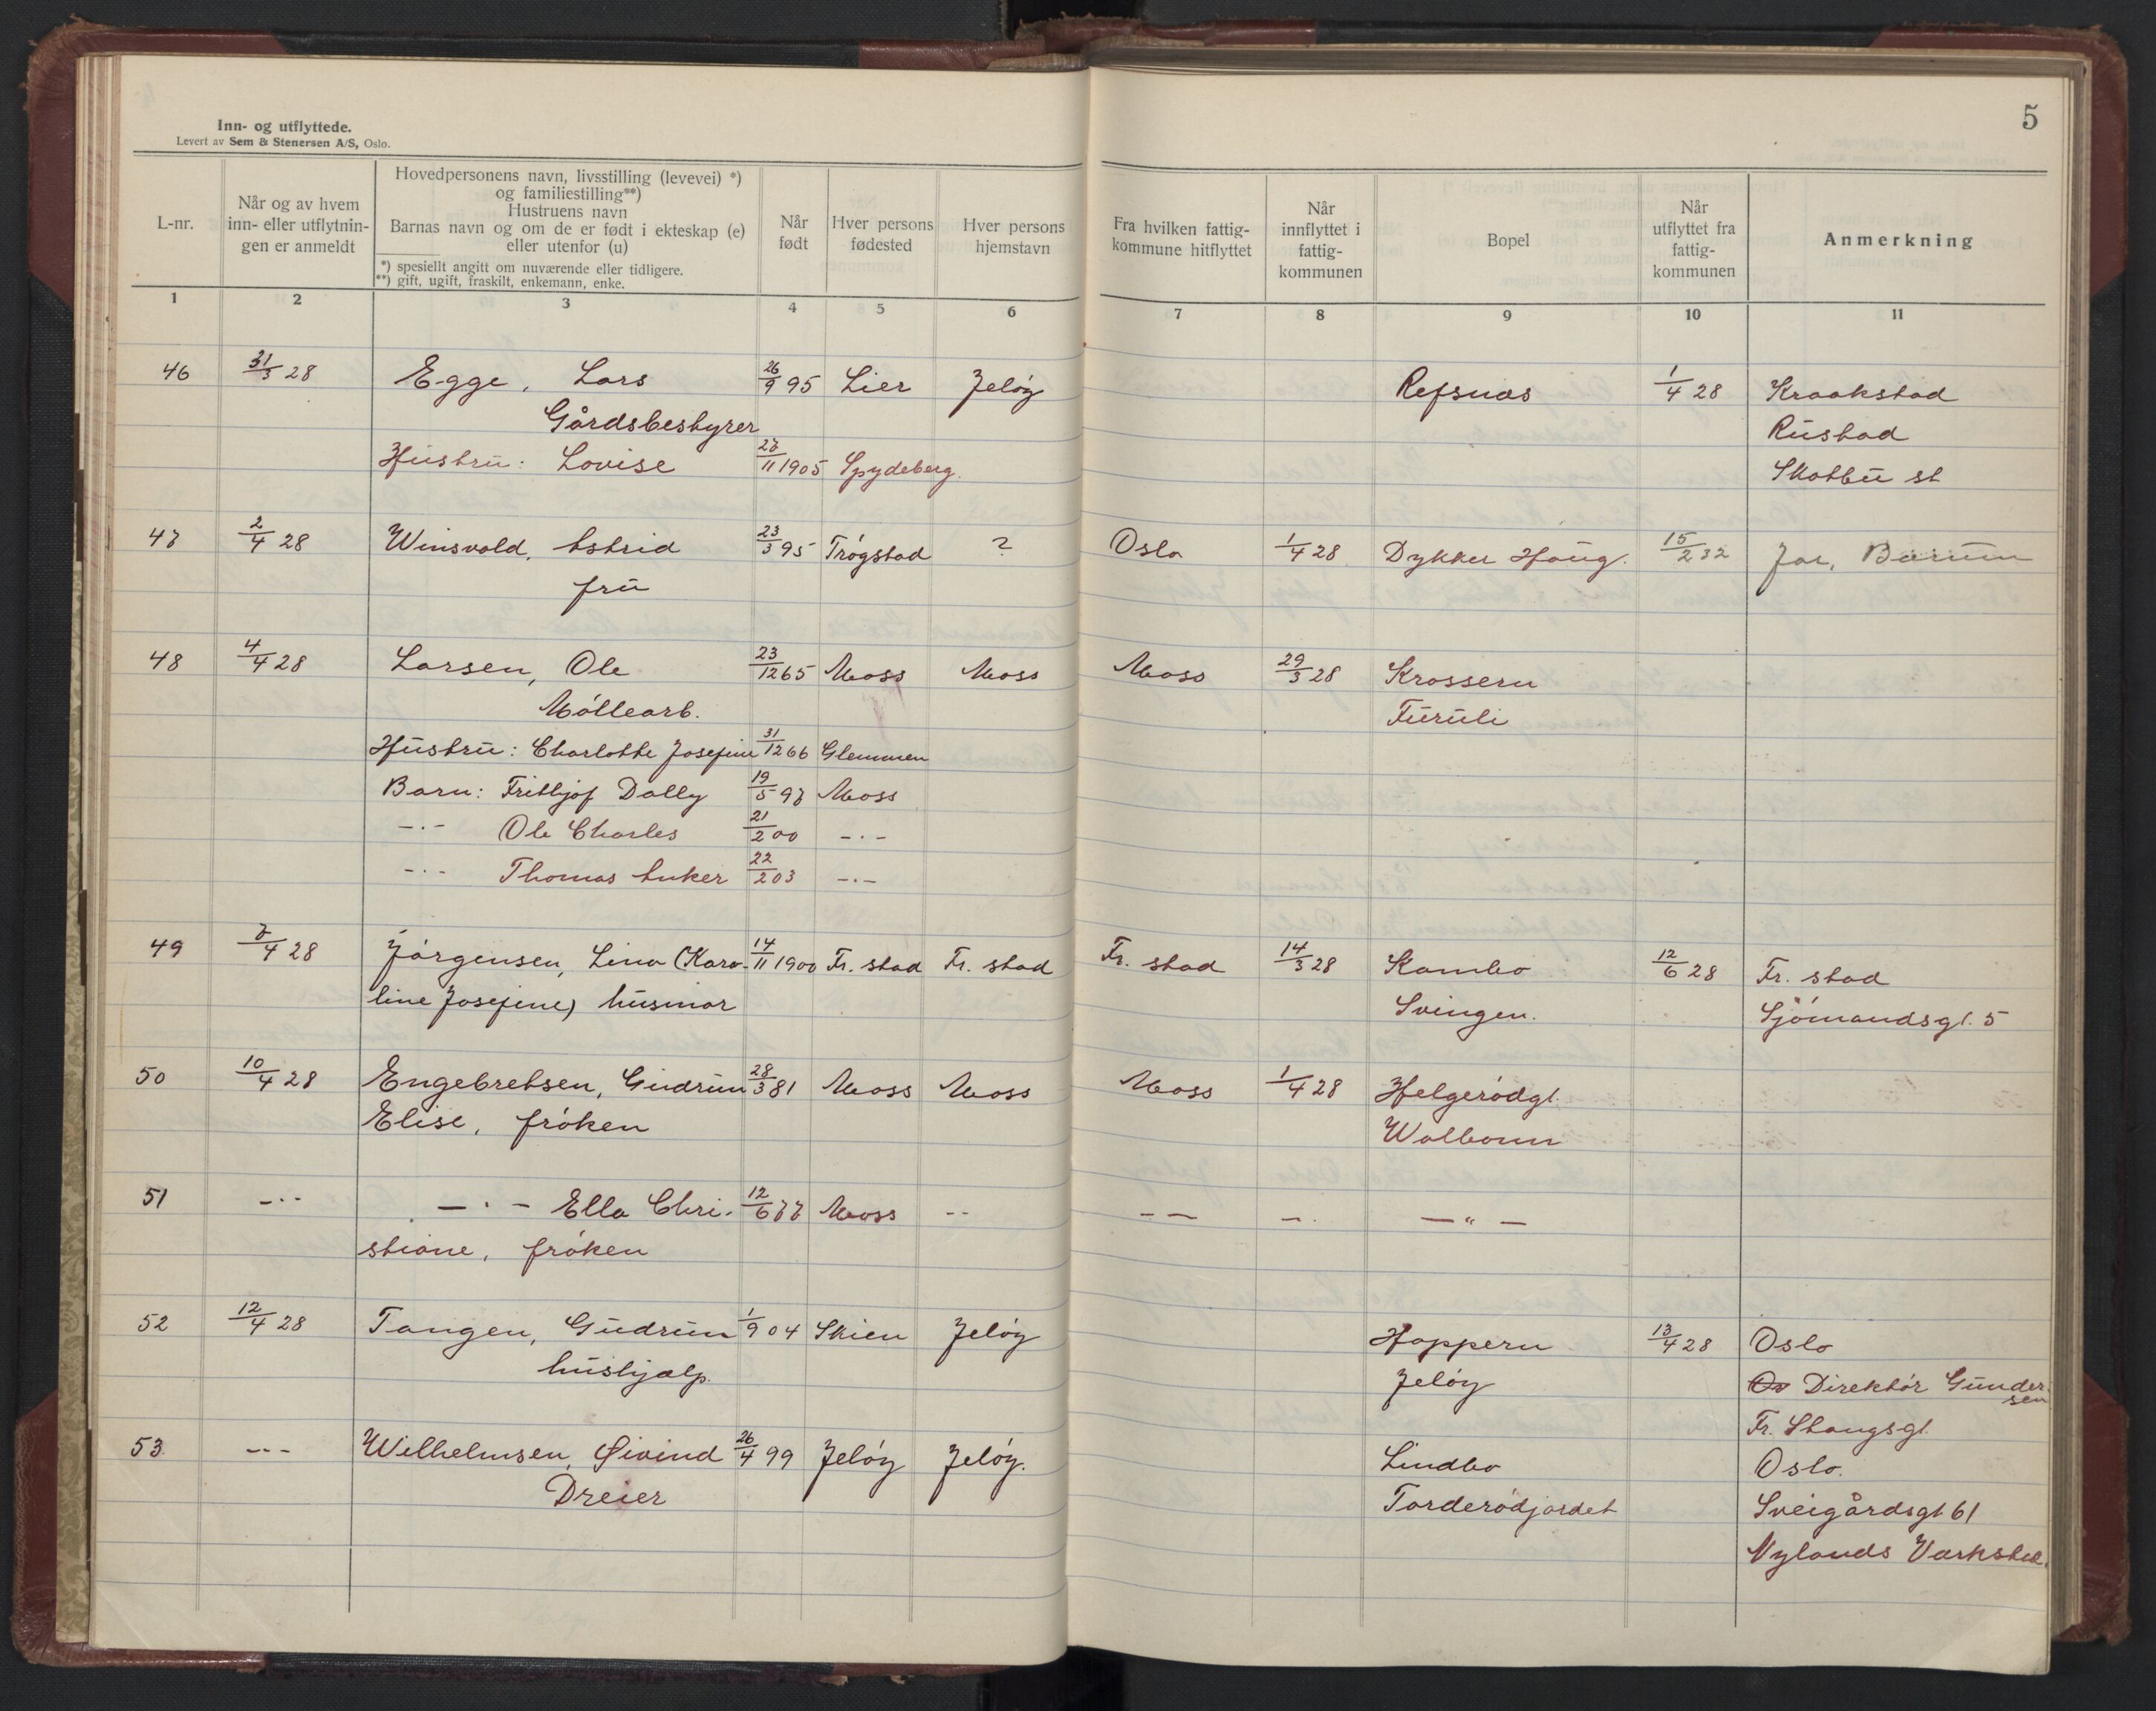 Inn- og utflyttede.
Levert av Sem & Stenersen A/S, Oslo.
5
L-nr.
Når og av hvem
inn- eller utflytnin-
gen er anmeldt
Hovedpersonens navn, livsstilling (levevei) *)
og familiestilling**)
Hustruens navn
Barnas navn og om de er født i ekteskap (e)
eller utenfor (u)
*) spesiellt angitt om nuværende eller tidligere.
**) gift, ugift, fraskilt, enkemann, enke.
Når
født
Hver persons
fødested
Hver persons
hjemstavn
Fra hvilken fattig-
kommune hitflyttet
Når
innflyttet i
fattig-
kommunen
Bopel
Når
utflyttet fra
fattig-
kommunen
Anmerkning
1 2 3 4 5 6 7 8 9 10 11
46 31/3 28 Egge, Lars 26/9 95 Lier Jeløy Refsnæs 1/4 28 Kraakstad
Gårdsbestyrer Rustad
Hustru: Lovise 27/11 1905 Spydeberg. Skotbu st
47 2/4 28 Winsvold, Astrid 23/3 95 Trøgstad ? Oslo 1/4 28 Dykker Haug. 15/2 32 Jar, Bærum
fru
48 4/4 28 Larsen, Ole 23/12 65 Moss Moss Moss 29/3 28 Krossern
Møllearb. Furuli
Hustru: Charlotte Josefine 31/12 66 Glemmen
Barn: Fritbjof Dally 19/5 97 Moss
-·- Ole Charles 21/2 00 -·-
-·- Thomas Anker 22/2 03 -·-
49 7/4 28 Jørgensen, Lina (Karo- 14/11 1900 Fr. stad Fr. stad Fr. stad 14/3 28 Kambo 12/6 28 Fr. stad
line Josefine) husmor Svingen. Sjømandsgt. 5
50 10/4 28 Engebretsen, Gudrun 28/3 81 Moss Moss Moss 1/4 28 Helgerødgt.
Elise, frøken Walbonn
51 -·- -·- Ella Chri- 12/6 77 Moss -- -- -. -"-
stiane, frøken
52 12/4 28 Tangen, Gudrun 1/9 04 Skien Jeløy Hoppern 13/4 28 Oslo
hushjælp. Jeløy Os Direktør Gunder-
sen
Fr. Stangsgt.
53. -·- Wilhelmsen, Øivind 26/4 99 Jeløy Jeløy. Lindbo Oslo.
Dreier Torderødjordet Sveigårdsgt 61
Nylands Værksted.